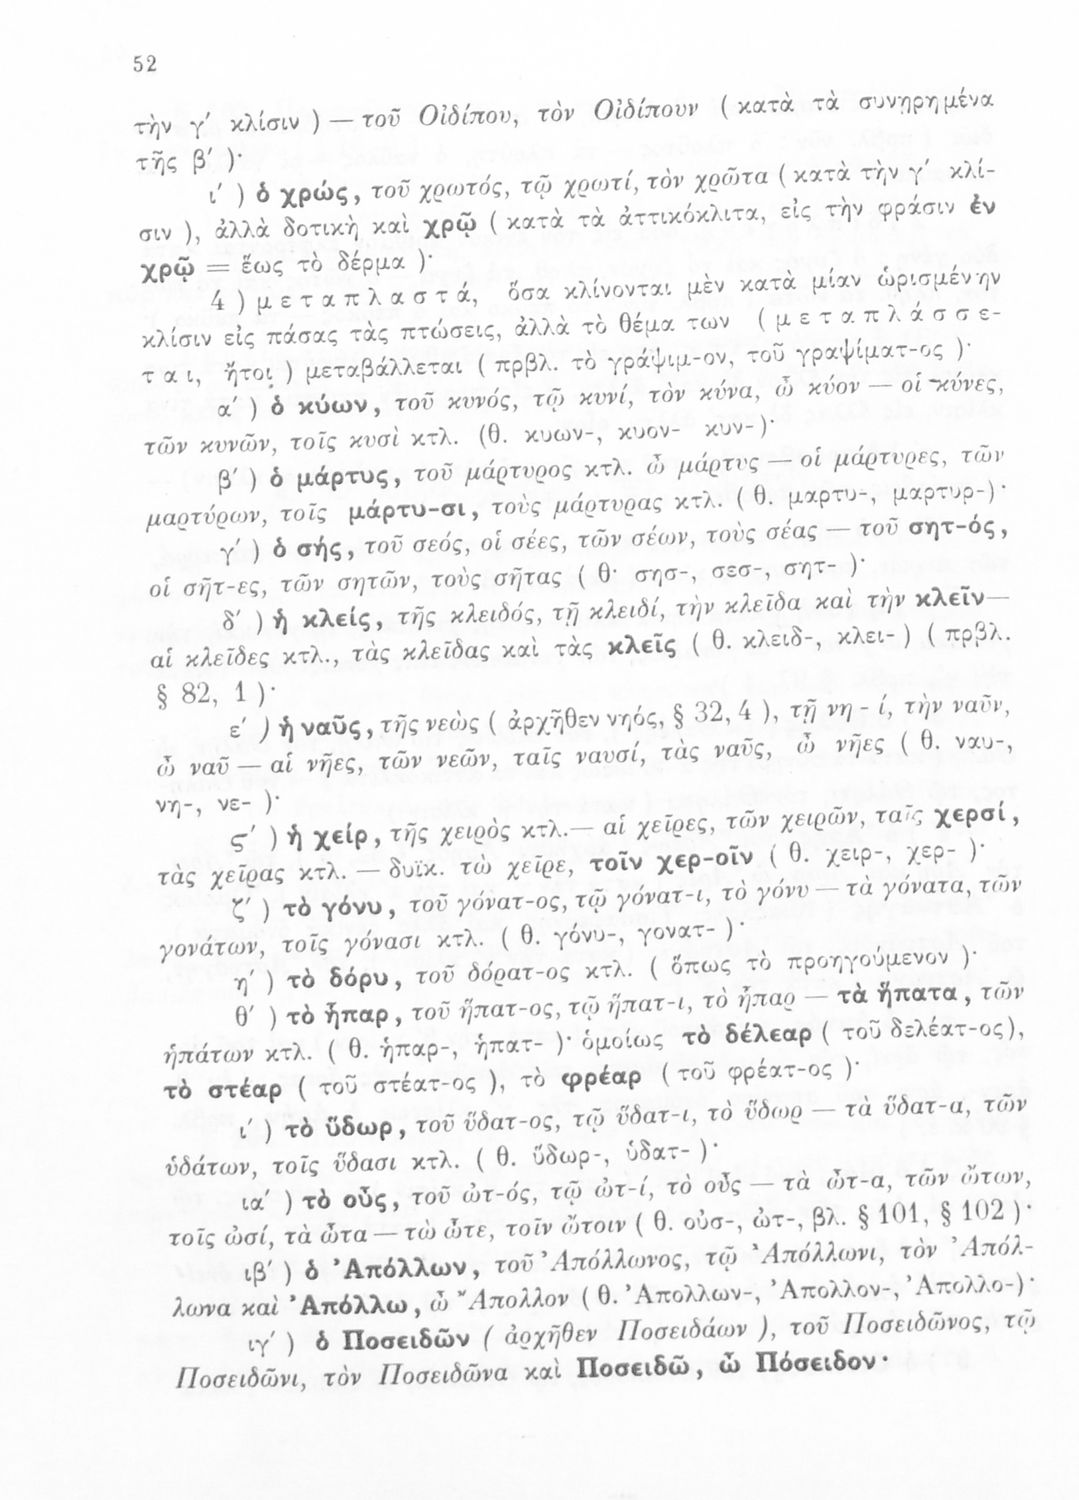 52
τὴν γ′ κλίσιν ) — τοῦ Οἰδίπου, τὸν Οἰδίπουν ( κατὰ τὰ συνῃρημένα
τῆς β′ )·
ι′ ) ὁ χρώς, τοῦ χρωτός, τῷ χρωτί, τὸν χρῶτα ( κατὰ τὴν γ′ κλί-
σιν ), ἀλλὰ δοτικὴ καὶ χρῷ ( κατὰ τὰ ἀττικόκλιτα, εἰς τὴν φράσιν ἐν
χρῷ = ἕως τὸ δέρμα )·
4 ) μεταπλαστά, ὅσα κλίνονται μὲν κατὰ μίαν ὡρισμένην
κλίσιν εἰς πάσας τὰς πτώσεις, ἀλλὰ τὸ θέμα των ( μεταπλάσσε-
ται, ἤτοι ) μεταβάλλεται ( πρβλ. τὸ γράψιμ-ον, τοῦ γραψίματ-ος )·
α′ ) ὁ κύων, τοῦ κυνός, τῷ κυνί, τὸν κύνα, ὦ κύον — οἱ κύνες,
τῶν κυνῶν, τοῖς κυσὶ κτλ. (θ. κυων-, κυον- κυν- )·
β′ ) ὁ μάρτυς, τοῦ μάρτυρος κτλ. ὦ μάρτυς — οἱ μάρτυρες, τῶν
μαρτύρων, τοῖς μάρτυ-σι, τοὺς μάρτυρας κτλ. ( θ. μαρτυ-, μαρτυρ-)·
γ′ ) ὁ σής, τοῦ σεός, οἱ σέες, τῶν σέων, τοὺς σέας — τοῦ σητ-ός,
οἱ σῆτ-ες, τῶν σητῶν, τοὺς σῆτας ( θ· σησ-, σεσ-, σητ- )·
δ′ ) ἡ κλείς, τῆς κλειδός, τῇ κλειδί, τὴν κλεῖδα καὶ τὴν κλεῖν—
αἱ κλεῖδες κτλ., τὰς κλεῖδας καὶ τὰς κλεῖς ( θ. κλειδ-, κλει- ) ( πρβλ.
§ 82, 1 )·
ε′ ) ἡ ναῦς, τῆς νεὼς ( ἀρχῆθεν νηός, § 32, 4 ), τῇ νη - ί, τὴν ναῦν,
ὦ ναῦ — αἱ νῆες, τῶν νεῶν, ταῖς ναυσί, τὰς ναῦς, ὦ νῆες ( θ. ναυ-,
νη-, νε- )·
ς′ ) ἡ χείρ, τῆς χειρὸς κτλ.— αἱ χεῖρες, τῶν χειρῶν, ταῖς χερσί,
τὰς χεῖρας κτλ. — δυϊκ. τὼ χεῖρε, τοῖν χερ-οῖν ( θ. χειρ-, χερ- )·
ζ′ ) τὸ γόνυ, τοῦ γόνατ-ος, τῷ γόνατ-ι, τὸ γόνυ — τὰ γόνατα, τῶν
γονάτων, τοῖς γόνασι κτλ. ( θ. γόνυ-, γονατ- )·
η′ ) τὸ δόρυ, τοῦ δόρατ-ος κτλ. ( ὅπως τὸ προηγούμενον )·
θ′ ) τὸ ἧπαρ, τοῦ ἥπατ-ος, τῷ ἥπατ-ι, τὸ ἧπαρ — τὰ ἥπατα, τῶν
ἡπάτων κτλ. ( θ. ἡπαρ-, ἡπατ- )· ὁμοίως τὸ δέλεαρ ( τοῦ δελέατ-ος),
τὸ στέαρ ( τοῦ στέατ-ος ), τὸ φρέαρ ( τοῦ φρέατ-ος )·
ι′ ) τὸ ὕδωρ, τοῦ ὕδατ-ος, τῷ ὕδατ-ι, τὸ ὕδωρ — τὰ ὕδατ-α, τῶν
ὑδάτων, τοῖς ὕδασι κτλ. ( θ. ὕδωρ-, ὑδατ- )·
ια′ ) τὸ οὖς, τοῦ ὠτ-ός, τῷ ὠτ-ί, τὸ οὖς — τὰ ὦτ-α, τῶν ὤτων,
τοῖς ὠσί, τὰ ὦτα — τὼ ὦτε, τοῖν ὤτοιν ( θ. οὐσ-, ὠτ-, βλ. § 101, § 102 )·
ιβ′ ) ὁ Ἀπόλλων, τοῦ Ἀπόλλωνος, τῷ Ἀπόλλωνι, τὸν Ἀπόλ-
λωνα καὶ Ἀπόλλω, ὦ Ἄπολλον ( θ. Ἀπολλων-, Ἀπολλον-, Ἀπολλο-)·
ιγ′ ) ὁ Ποσειδῶν ( ἀρχῆθεν Ποσειδάων ), τοῦ Ποσειδῶνος, τῷ
Ποσειδῶνι, τὸν Ποσειδῶνα καὶ Ποσειδῶ, ὦ Πόσειδον·